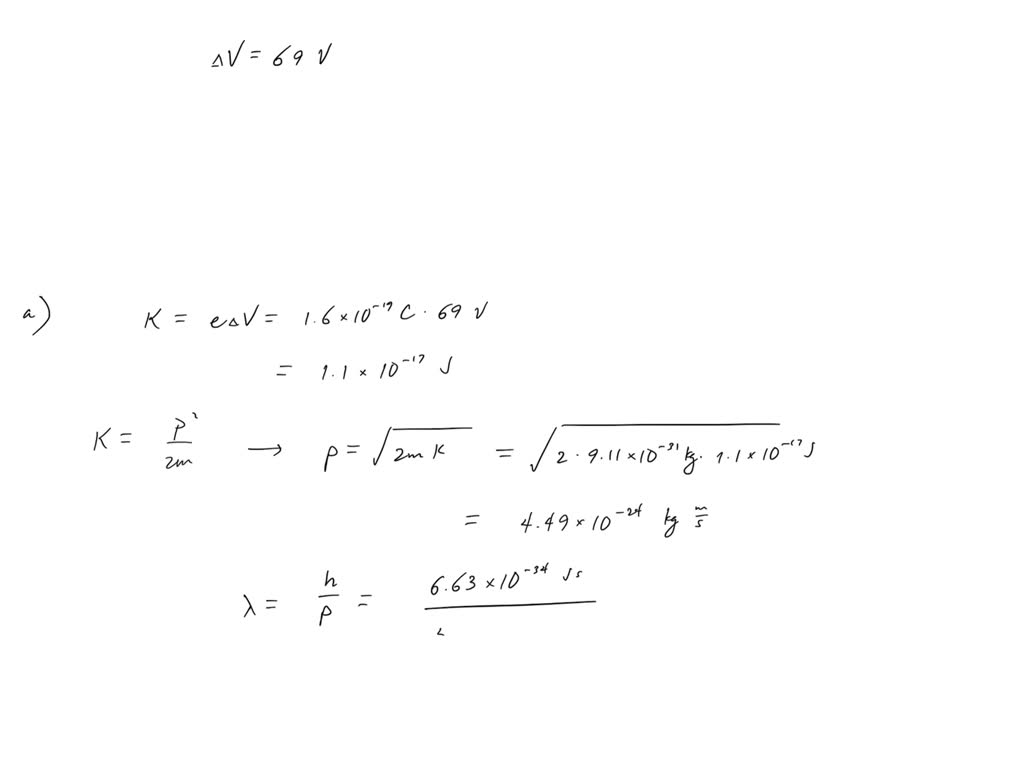 ΔV = 69 V
a) K = eΔV = 1.6 × 10⁻¹⁹ C · 69 V
= 1.1 × 10⁻¹⁷ J
K = p²/2m → p = √(2mK) = √(2 · 9.11 × 10⁻³¹ kg · 1.1 × 10⁻¹⁷ J)
= 4.49 × 10⁻²⁴ kg m/s
λ = h/p = 6.63 × 10⁻³⁴ Js /